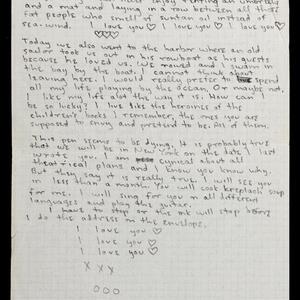 and a mat and laying in a row between all those
fat people who smell of suntan oil instead of
sea-wind. I love you ♡ I love you ♡ I love you ♡
♡♡♡
Today we also went to the harbor where an old
sailor took us out in his rowboat as his guests
because he loved us. We rowed and I swam in
the bay by the boat. I cannot think about
leaving here. I would really prefer to spend
all my life playing by the ocean. Or maybe not.
I like my life alot the way it is. How can I
be so lucky? I live like the heroines of the
children's books I remember, the ones you are
supposed to envy and pretend to be. All of them.
This pen seems to be dying. It is probably true
that we will be in New York on the date I last
wrote you. I am cynical about all
theatrical plans and I know you know why.
But they say it is really true. I will see you
in less than a month. You will cook kreplach soup
for me. I will sing for you in all different
languages and play the guitar.
I have to stop or the ink will stop before
I do the address on the envelope.
I love you ♡
I love you ♡
I love you ♡
X X X
O O O